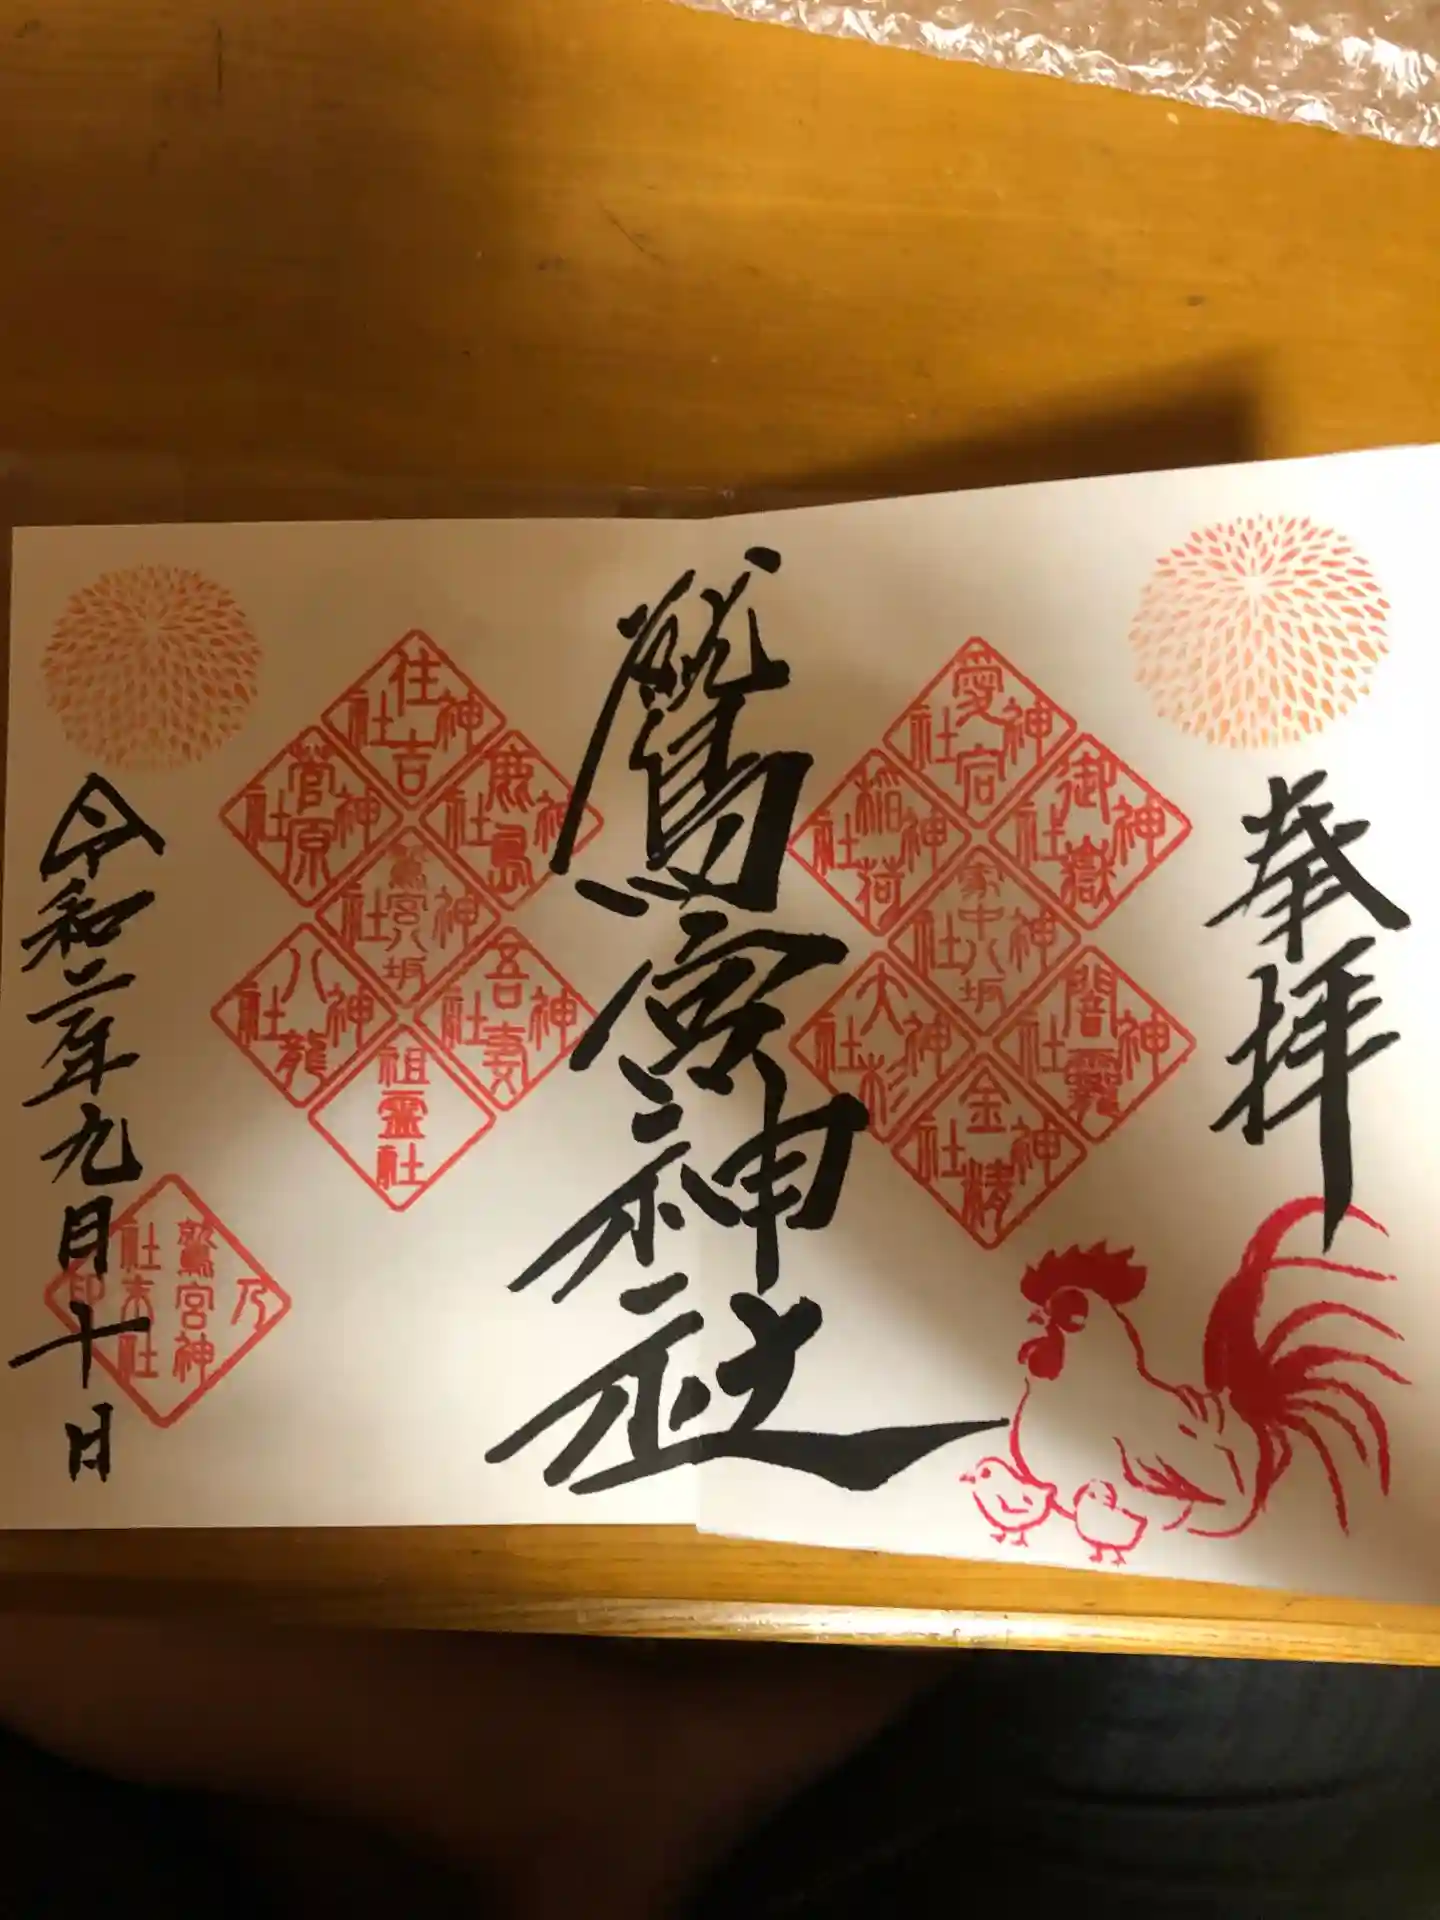 奉拝
愛宕神社
御嶽神社
稲荷神社
家中八坂神社
闇龗神社
大杉神社
金精神社
鷲宮神社
住吉神社
鹿島神社
菅原神社
鷲宮八坂神社
吾妻神社
八龍神社
祖霊社
令和二年九月十日
鷲宮神社末社乃印